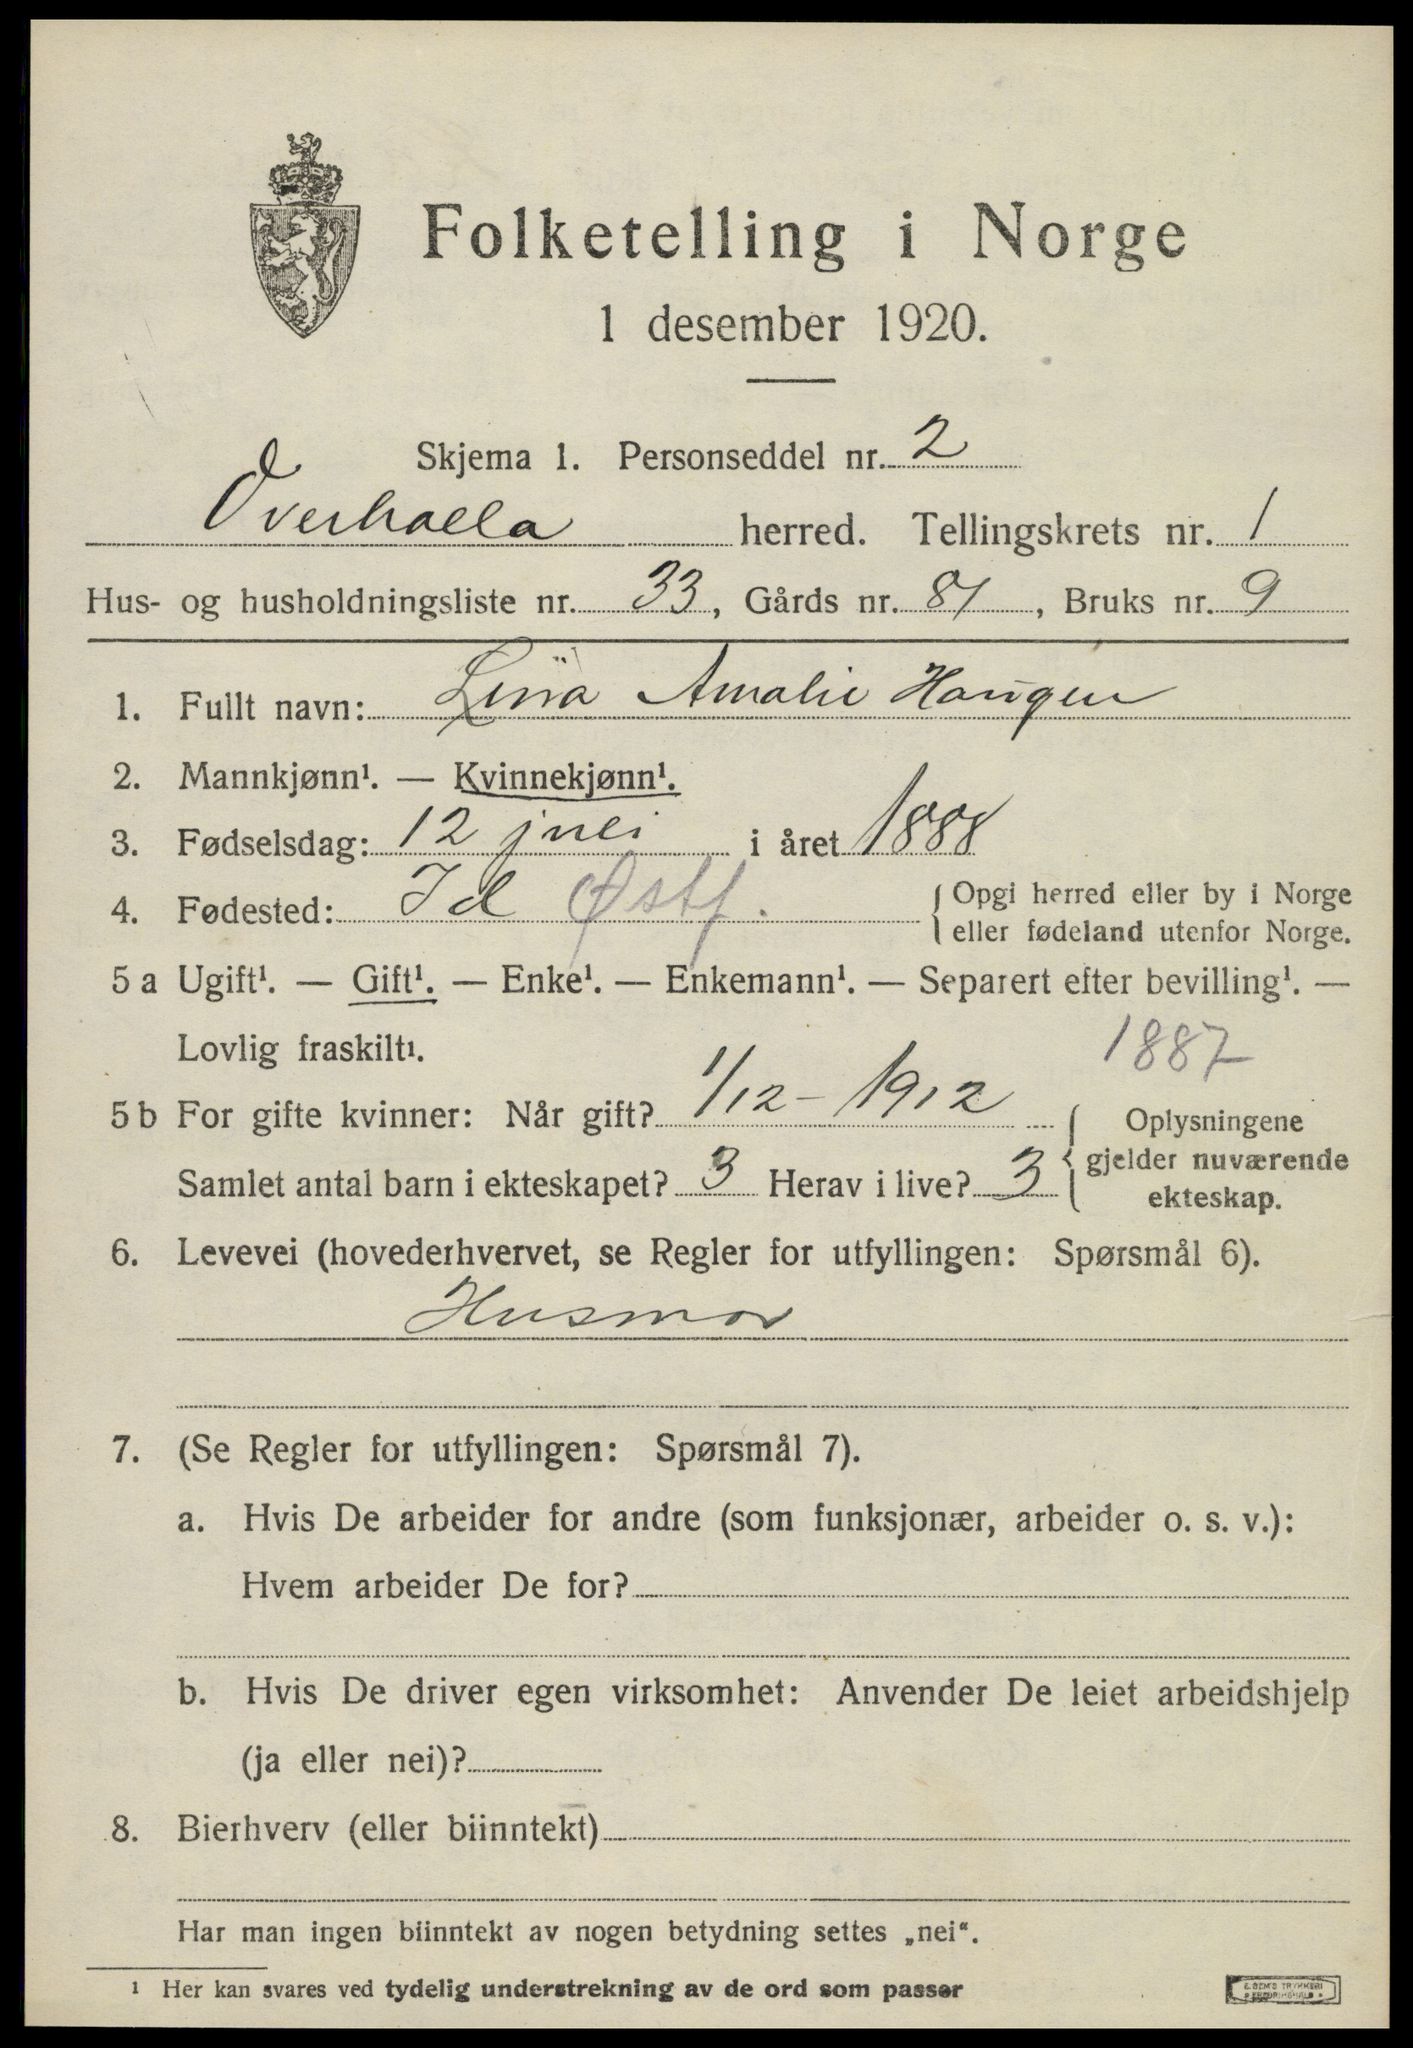 Folketelling i Norge
1 desember 1920.
Skjema 1. Personseddel nr. 2
Overhalla herred. Tellingskrets nr. 1
Hus- og husholdningsliste nr. 33, Gårds nr. 81, Bruks nr. 9
1. Fullt navn: Lina Amalie Haugen
2. Mannkjønn¹. — Kvinnekjønn¹.
3. Fødselsdag: 12 juli i året 1888
4. Fødested: Id Østf. { Opgi herred eller by i Norge
eller fødeland utenfor Norge.
5 a Ugift¹. — Gift¹. — Enke¹. — Enkemann¹. — Separert efter bevilling¹. —
Lovlig fraskilt¹. 1887
5 b For gifte kvinner: Når gift? 1/12 - 1912
Samlet antal barn i ekteskapet? 3 Herav i live? 3
{ Oplysningene
gjelder nuværende
ekteskap.
6. Levevei (hovederhvervet, se Regler for utfyllingen: Spørsmål 6).
Husmor
7. (Se Regler for utfyllingen: Spørsmål 7).
a. Hvis De arbeider for andre (som funksjonær, arbeider o. s. v.):
Hvem arbeider De for?
b. Hvis De driver egen virksomhet: Anvender De leiet arbeidshjelp
(ja eller nei)?
8. Bierhverv (eller biinntekt)
Har man ingen biinntekt av nogen betydning settes „nei“.
¹ Her kan svares ved tydelig understrekning av de ord som passer